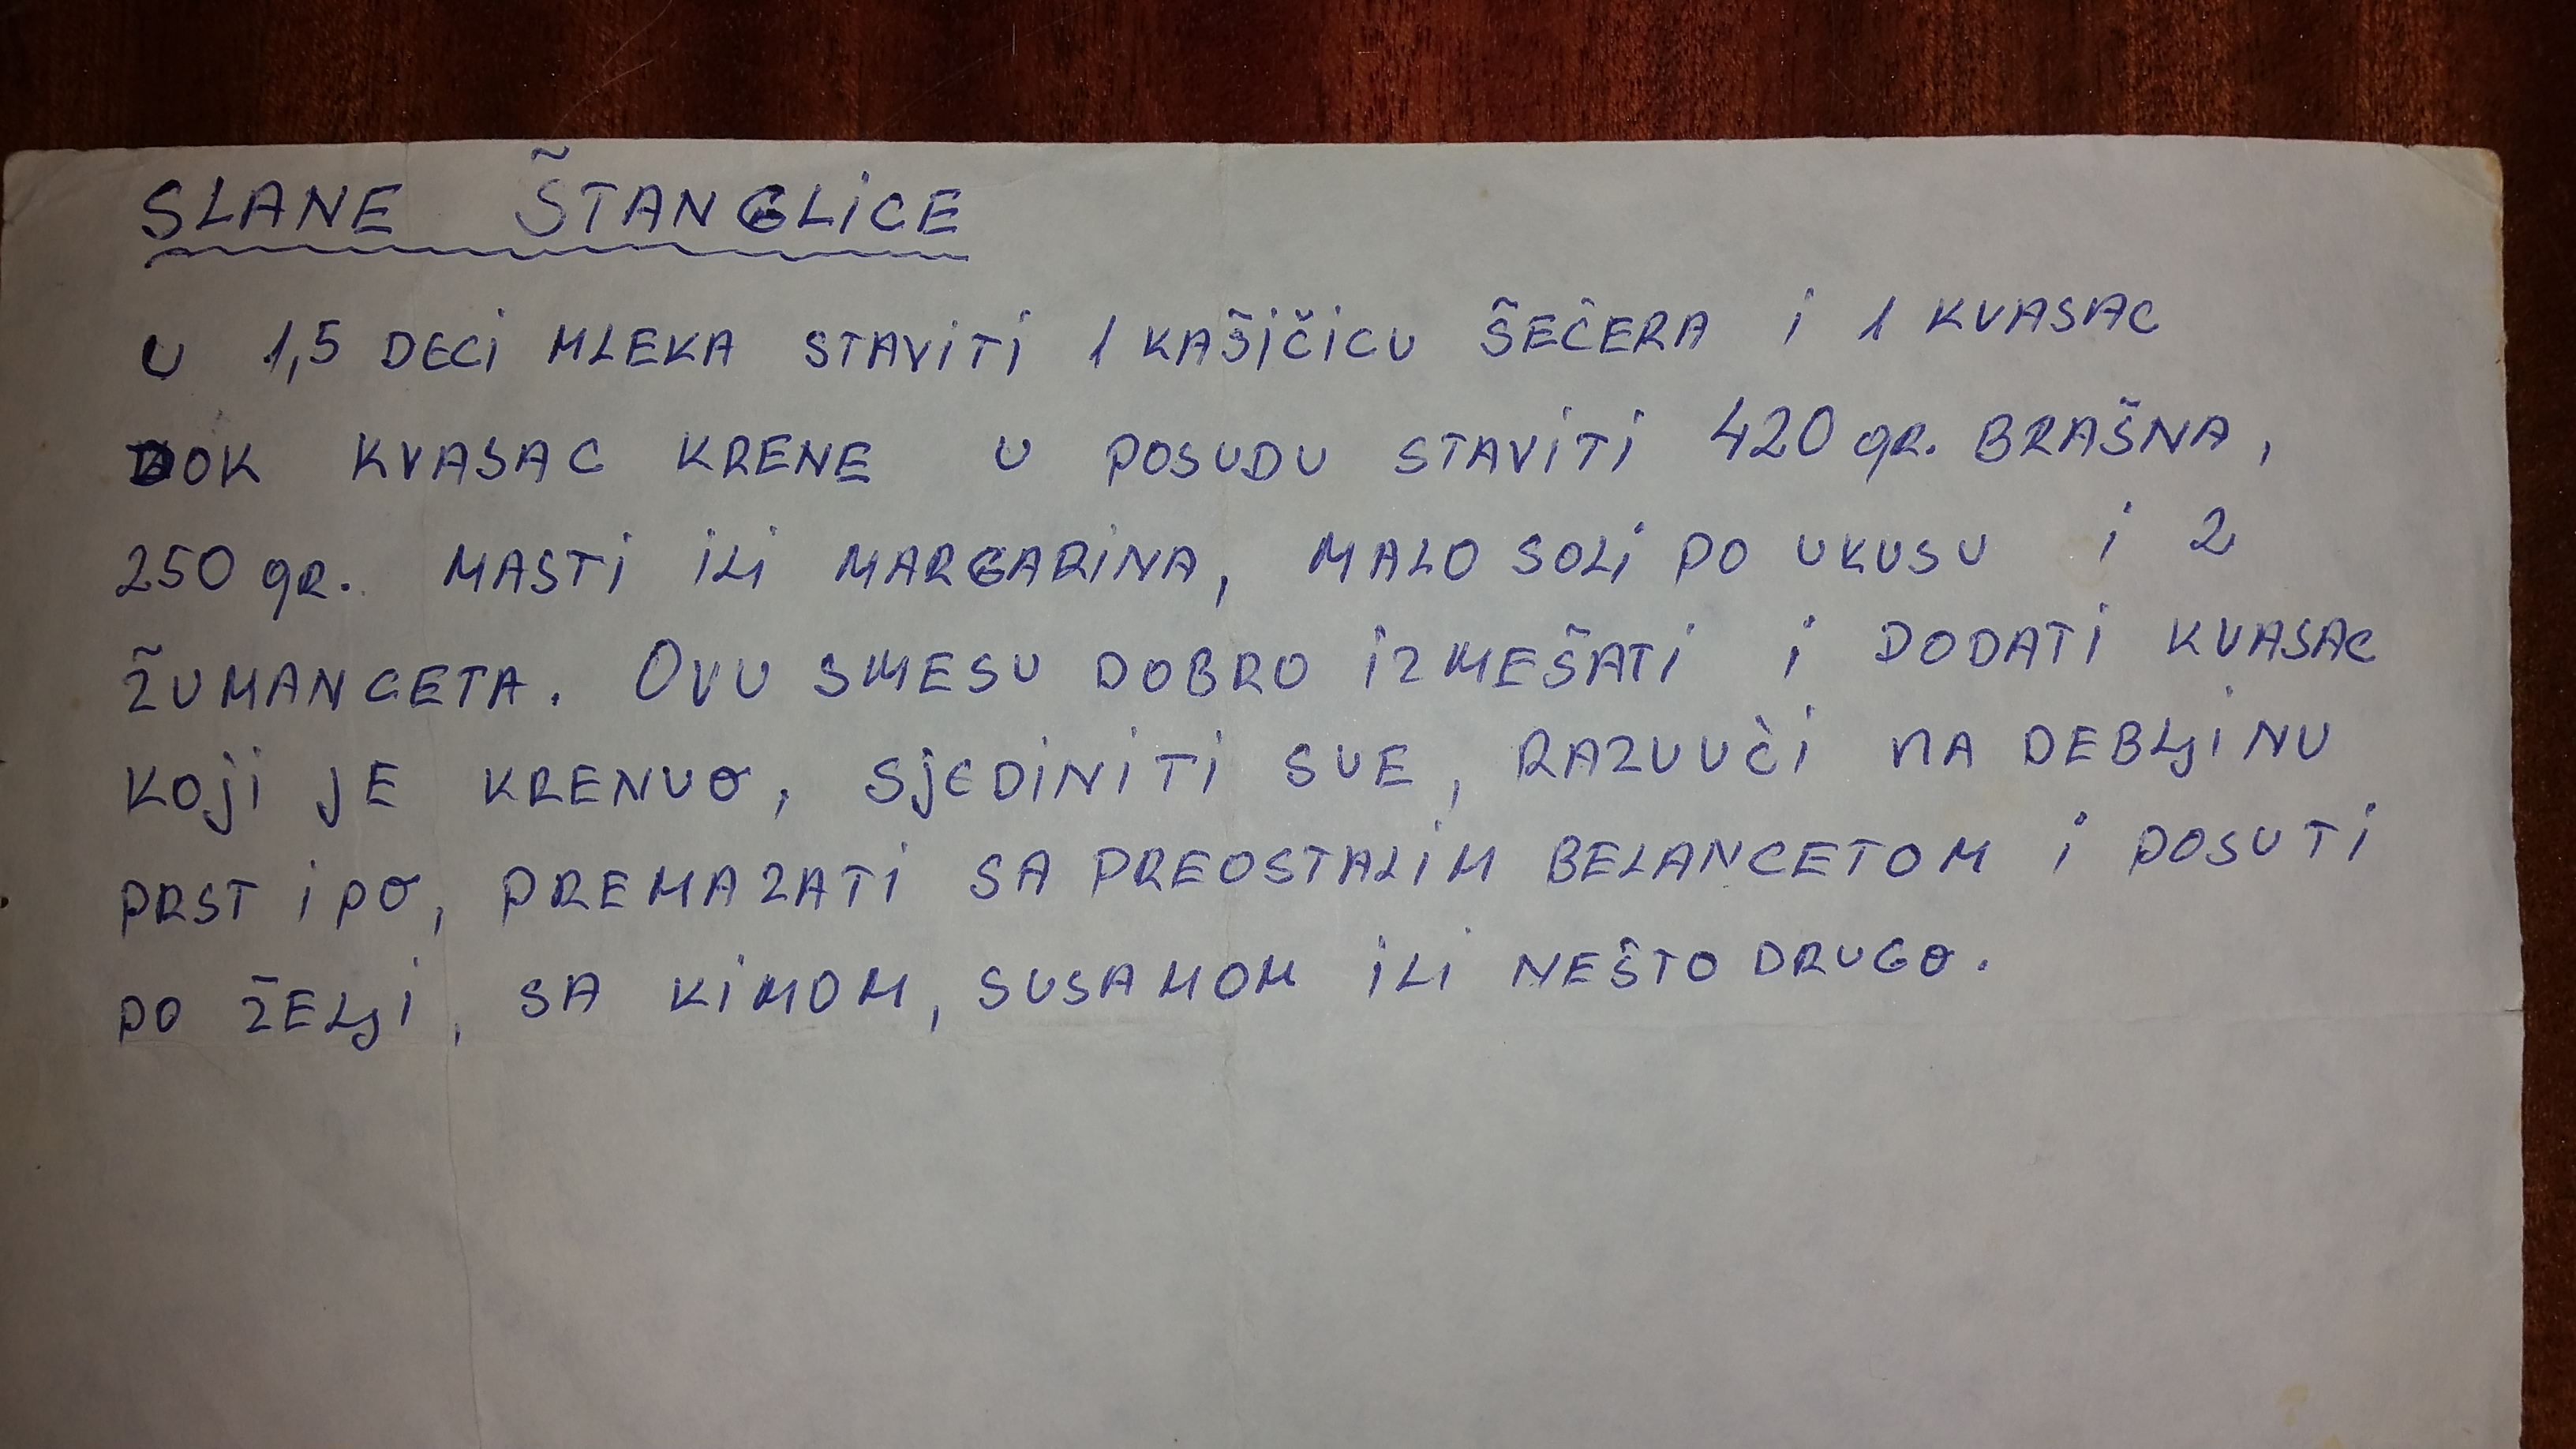 SLANE ŠTANGLICE
U 1,5 DECI MLEKA STAVITI 1 KAŠIČICU ŠEĆERA I 1 KVASAC
DOK KVASAC KRENE U POSUDU STAVITI 420 gr. BRAŠNA,
250 gr. MASTI ILI MARGARINA, MALO SOLI PO UKUSU I 2
ŽUMANCETA. OVU SMESU DOBRO IZMEŠATI I DODATI KVASAC
KOJI JE KRENUO, SJEDINITI SVE, RAZVUĆI NA DEBLJINU
PRST IPO, PREMAZATI SA PREOSTALIM BELANCETOM I POSUTI
PO ŽELJI, SA KIMOM, SUSAMOM ILI NEŠTO DRUGO.